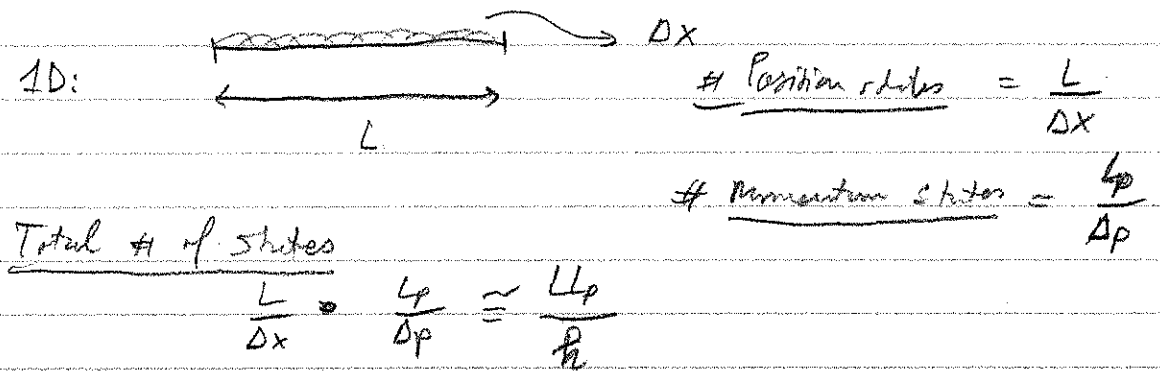 Δx
1D:
# Position states = L/Δx
L
# Momentum states = Lp/Δp
Total # of states
L/Δx • Lp/Δp ≅ LLp/h